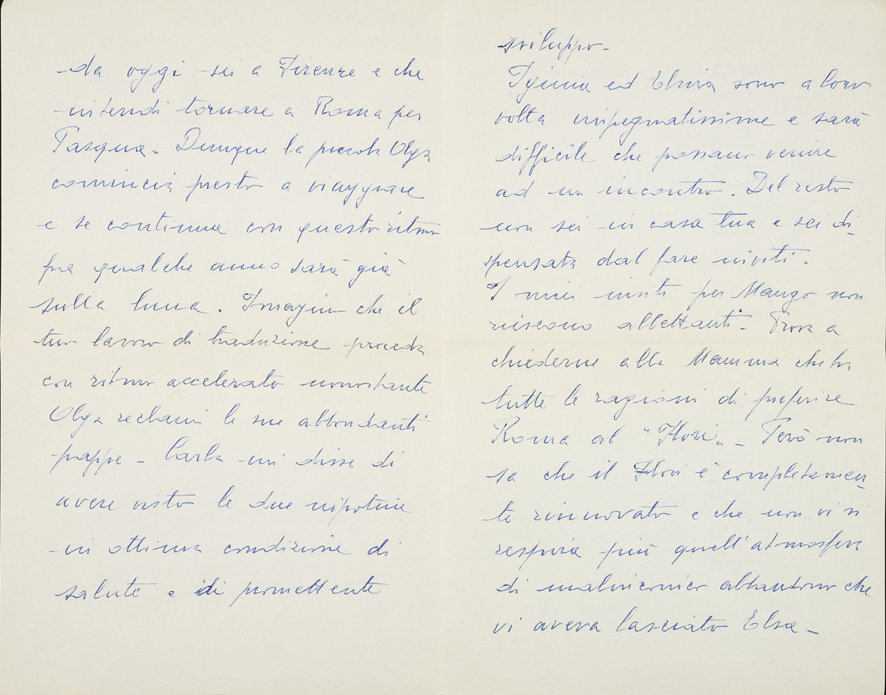 da oggi sei a Firenze e che
intendi tornare a Roma per
Pasqua. Dunque la piccola Olga
comincia presto a viaggiare
e se continua con questo ritmo
fra qualche anno sarà già
sulla luna. Immagino che il
tuo lavoro di traduzione proceda
con ritmo accelerato nonostante
Olga reclami le sue abbondanti
pappe - Carla mi disse di
avere visto le due nipotine
in ottima condizione di
salute e di promettente
sviluppo -
Iginia ed Elvia sono a loro
volta impegnatissime e sarà
difficile che possano venire
ad un incontro. Del resto
non sei in casa tua e sei di-
spensata dal fare inviti.
I miei inviti per Mango non
riescono allettanti. Prova a
chiederne alla Mamma che ha
tutte le ragioni di preferire
Roma al "Flori" - Però non
sa che il Flori è completamen-
te rinnovato e che non vi si
respira più quell'atmosfera
di malinconico abbandono che
vi aveva lasciato Elsa -